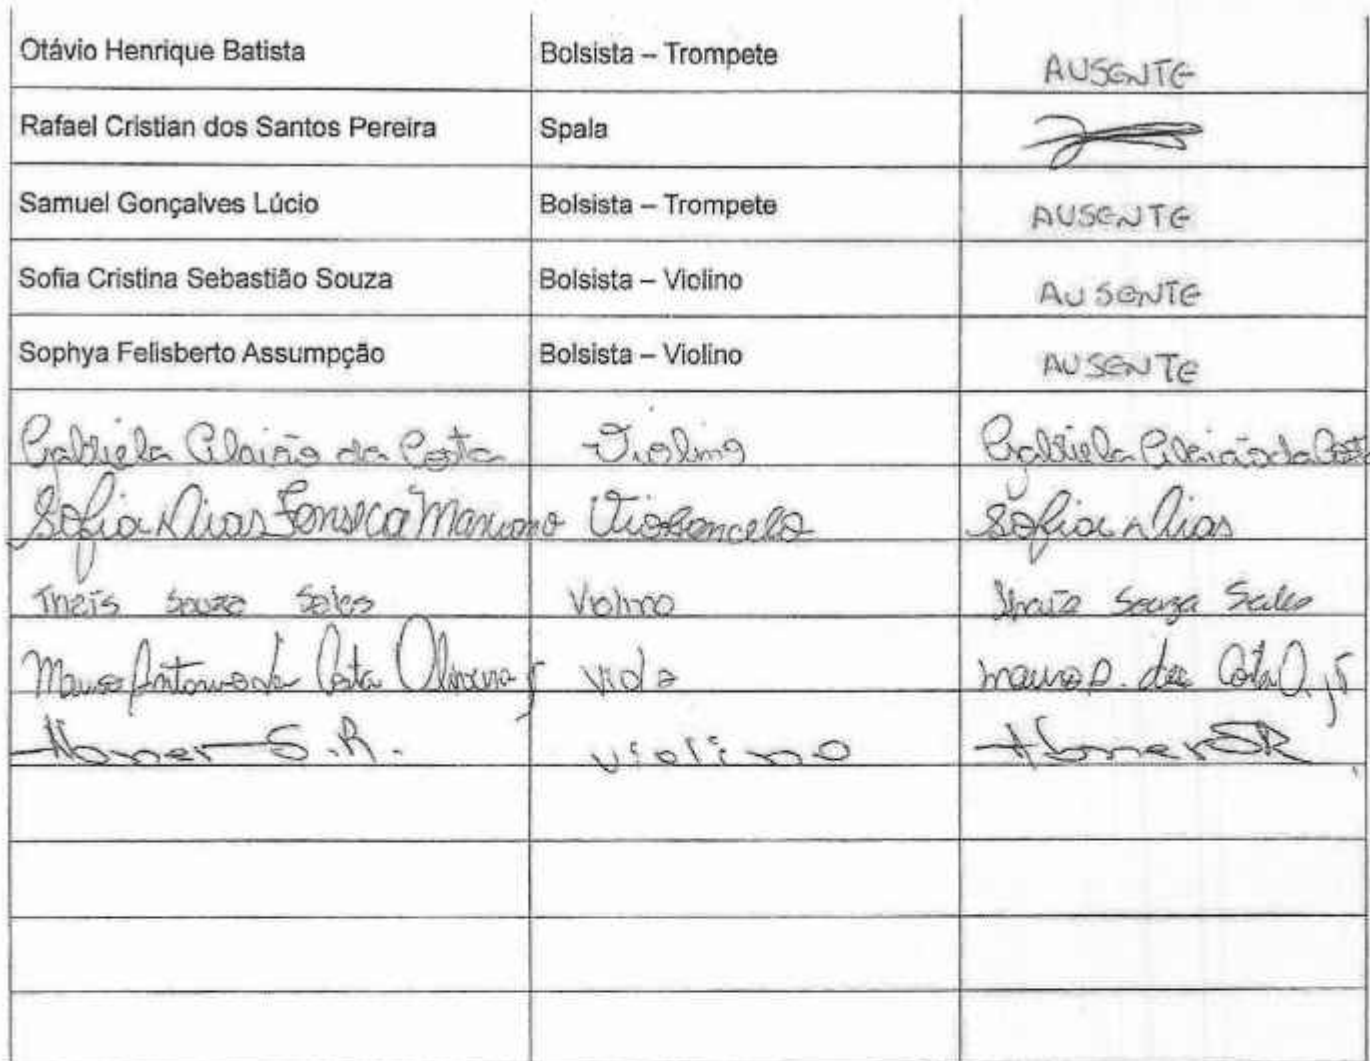 Otávio Henrique Batista Bolsista – Trompete AUSENTE
Rafael Cristian dos Santos Pereira Spala
Samuel Gonçalves Lúcio Bolsista – Trompete AUSENTE
Sofia Cristina Sebastião Souza Bolsista – Violino AUSENTE
Sophya Felisberto Assumpção Bolsista – Violino AUSENTE
Gabriela da Costa Violino Gabriela da Costa
Sofia Dias Fonseca Mariano Violoncelo Sofia Dias
Thaís Souza Sales Violino Thaís Souza Sales
Mauro Antonio da Costa Oliveira Jr Viola Mauro A. da Costa O. Jr
Abner S.R. violino Abner SR